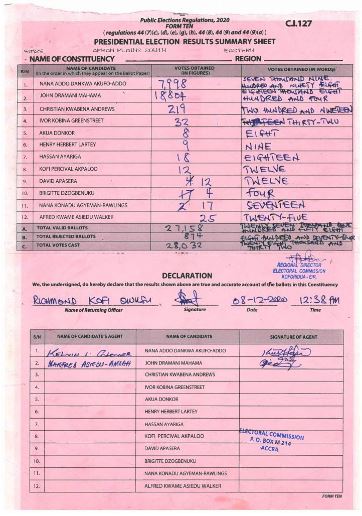 Public Elections Regulations, 2020
FORM TEN
C.I.127
( regulations 44 (7)(c), (d), (e), (g), (h), 44 (8), 44 (9) and 44 (9)(a) )
PRESIDENTIAL ELECTION RESULTS SUMMARY SHEET
NAME OF CONSTITUENCY EASTERN REGION
S/N NAME OF CANDIDATE (In the order in which they appear on the Ballot Paper) VOTES OBTAINED (IN FIGURES) VOTES OBTAINED (IN WORDS)
1. NANA ADDO DANKWA AKUFO-ADDO 7,998 SEVEN THOUSAND NINE HUNDRED AND NINETY EIGHT
2. JOHN DRAMANI MAHAMA 18,804 EIGHTEEN THOUSAND EIGHT HUNDRED AND FOUR
3. CHRISTIAN KWABENA ANDREWS 219 TWO HUNDRED AND NINETEEN
4. IVOR KOBINA GREENSTREET 32 THIRTY-TWO
5. AKUA DONKOR 8 EIGHT
6. HENRY HERBERT LARTEY 9 NINE
7. HASSAN AYARIGA 18 EIGHTEEN
8. KOFI PERCIVAL AKPALOO 12 TWELVE
9. DAVID APASERA 12 TWELVE
10. BRIGITTE DZOGBENUKU 4 FOUR
11. NANA KONADU AGYEMAN-RAWLINGS 17 SEVENTEEN
12. ALFRED KWAME ASIEDU WALKER 25 TWENTY-FIVE
A. TOTAL VALID BALLOTS 27,158 TWENTY SEVEN THOUSAND ONE HUNDRED AND FIFTY EIGHT
B. TOTAL REJECTED BALLOTS 874 EIGHT HUNDRED AND SEVENTY-FOUR
C. TOTAL VOTES CAST 28,032 TWENTY EIGHT THOUSAND AND THIRTY TWO
REGIONAL DIRECTOR
ELECTORAL COMMISSION
KOFORIDUA - E/R
DECLARATION
We, the undersigned, do hereby declare that the results shown above are true and accurate account of the ballots in this Constituency
RICHMOND KOFI 08-12-2020 12:38 AM
Name of Returning Officer Signature Date Time
S/N NAME OF CANDIDATE'S AGENT NAME OF CANDIDATE SIGNATURE OF AGENT
1. NANA ADDO DANKWA AKUFO-ADDO
2. JOHN DRAMANI MAHAMA
3. CHRISTIAN KWABENA ANDREWS
4. IVOR KOBINA GREENSTREET
5. AKUA DONKOR
6. HENRY HERBERT LARTEY
7. HASSAN AYARIGA
8. KOFI PERCIVAL AKPALOO
9. DAVID APASERA
10. BRIGITTE DZOGBENUKU
11. NANA KONADU AGYEMAN-RAWLINGS
12. ALFRED KWAME ASIEDU WALKER
ELECTORAL COMMISSION
P. O. BOX M 214
ACCRA
FORM TEN